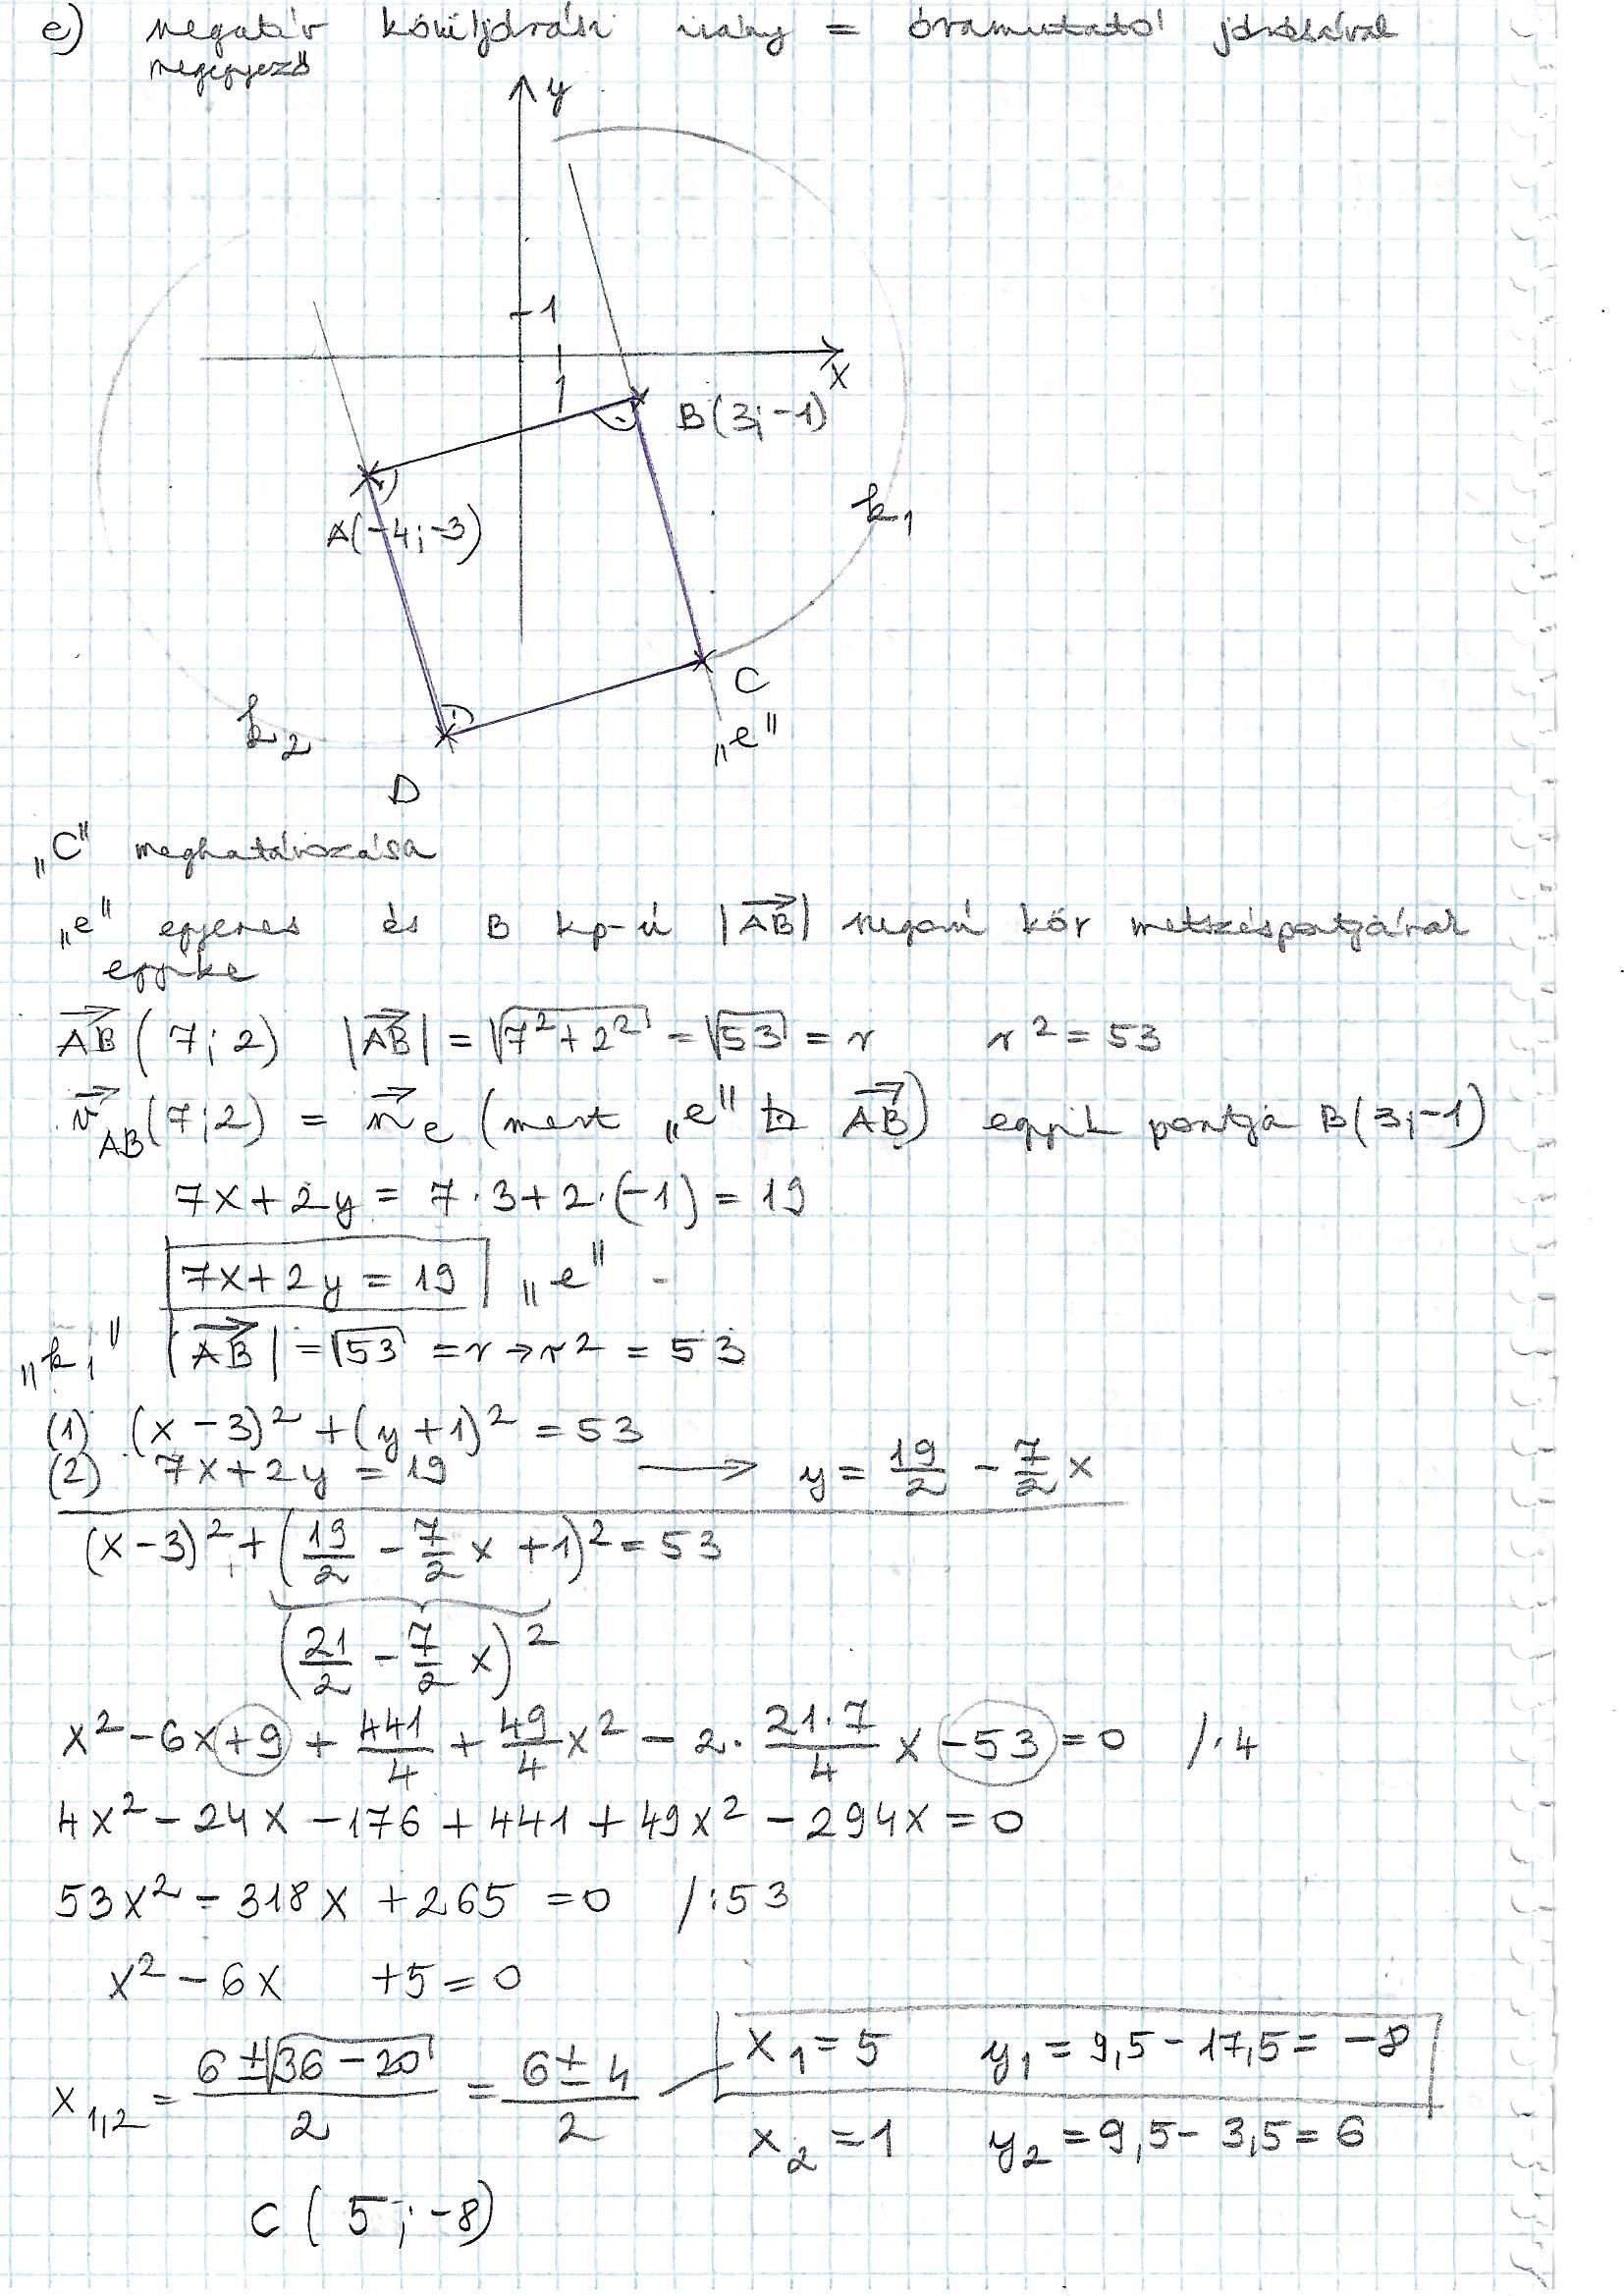 e) negatív körüljárási irány = óramutató járásával
megegyező
y
1
1
x
B(3;-1)
A(-4;-3)
k₁
C
k₂
„e"
D
„C" meghatározása
„e" egyenes és B kp-ú |AB→| sugarú kör metszéspontjának
egyike
AB→(7;2) |AB→| = √(7²+2²) = √53 = r r² = 53
v→_AB(7;2) = n→_e (mert „e" ⊥ AB→) egyik pontja B(3;-1)
7x+2y = 7·3+2·(-1) = 19
7x+2y = 19 „e"
„k₁" |AB→| = √53 = r → r² = 53
(1) (x-3)² + (y+1)² = 53
(2) 7x+2y = 19 → y = 19/2 - 7/2 x
(x-3)² + (19/2 - 7/2 x + 1)² = 53
(21/2 - 7/2 x)²
x² - 6x + 9 + 441/4 + 49/4 x² - 2· 21·7/4 x - 53 = 0 /·4
4x² - 24x - 176 + 441 + 49x² - 294x = 0
53x² - 318x + 265 = 0 /:53
x² - 6x + 5 = 0
x₁,₂ = (6 ± √(36-20))/2 = (6 ± 4)/2
x₁ = 5 y₁ = 9,5 - 17,5 = -8
x₂ = 1 y₂ = 9,5 - 3,5 = 6
C (5;-8)